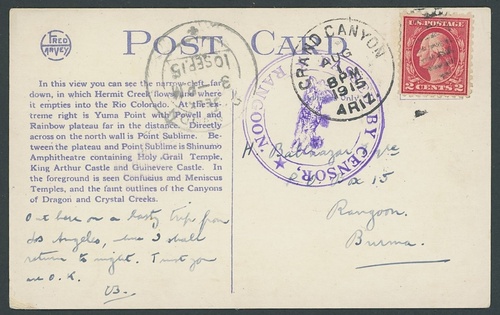 FRED HARVEY
POST CARD
In this view you can see the narrow cleft, far
down, in which Hermit Creek flows and where
it empties into the Rio Colorado. At the ex-
treme right is Yuma Point with Powell and
Rainbow plateau far in the distance. Directly
across on the north wall is Point Sublime. Be-
tween the plateau and Point Sublime is Shinumo
Amphitheatre containing Holy Grail Temple,
King Arthur Castle and Guinevere Castle. In
the foreground is seen Confucius and Meniscus
Temples, and the faint outlines of the Canyons
of Dragon and Crystal Creeks.
Out here on a hasty trip from
Los Angeles, and I shall
return to night. Trust you
are O.K.
10 SEP. 15
RANGOON
BY CENSOR.
GRAND CANYON
AUG
8 PM
1915
ARIZ.
U.S. POSTAGE
2 CENTS 2
H. Balthazar
Box 15
Rangoon
Burma.